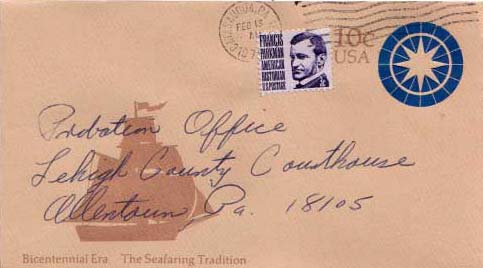 FEB 13
FRANCIS
PARKMAN
AMERICAN
HISTORIAN
U.S. POSTAGE
10c
USA
Probation Office
Lehigh County Courthouse
Allentown Pa. 18105
Bicentennial Era The Seafaring Tradition